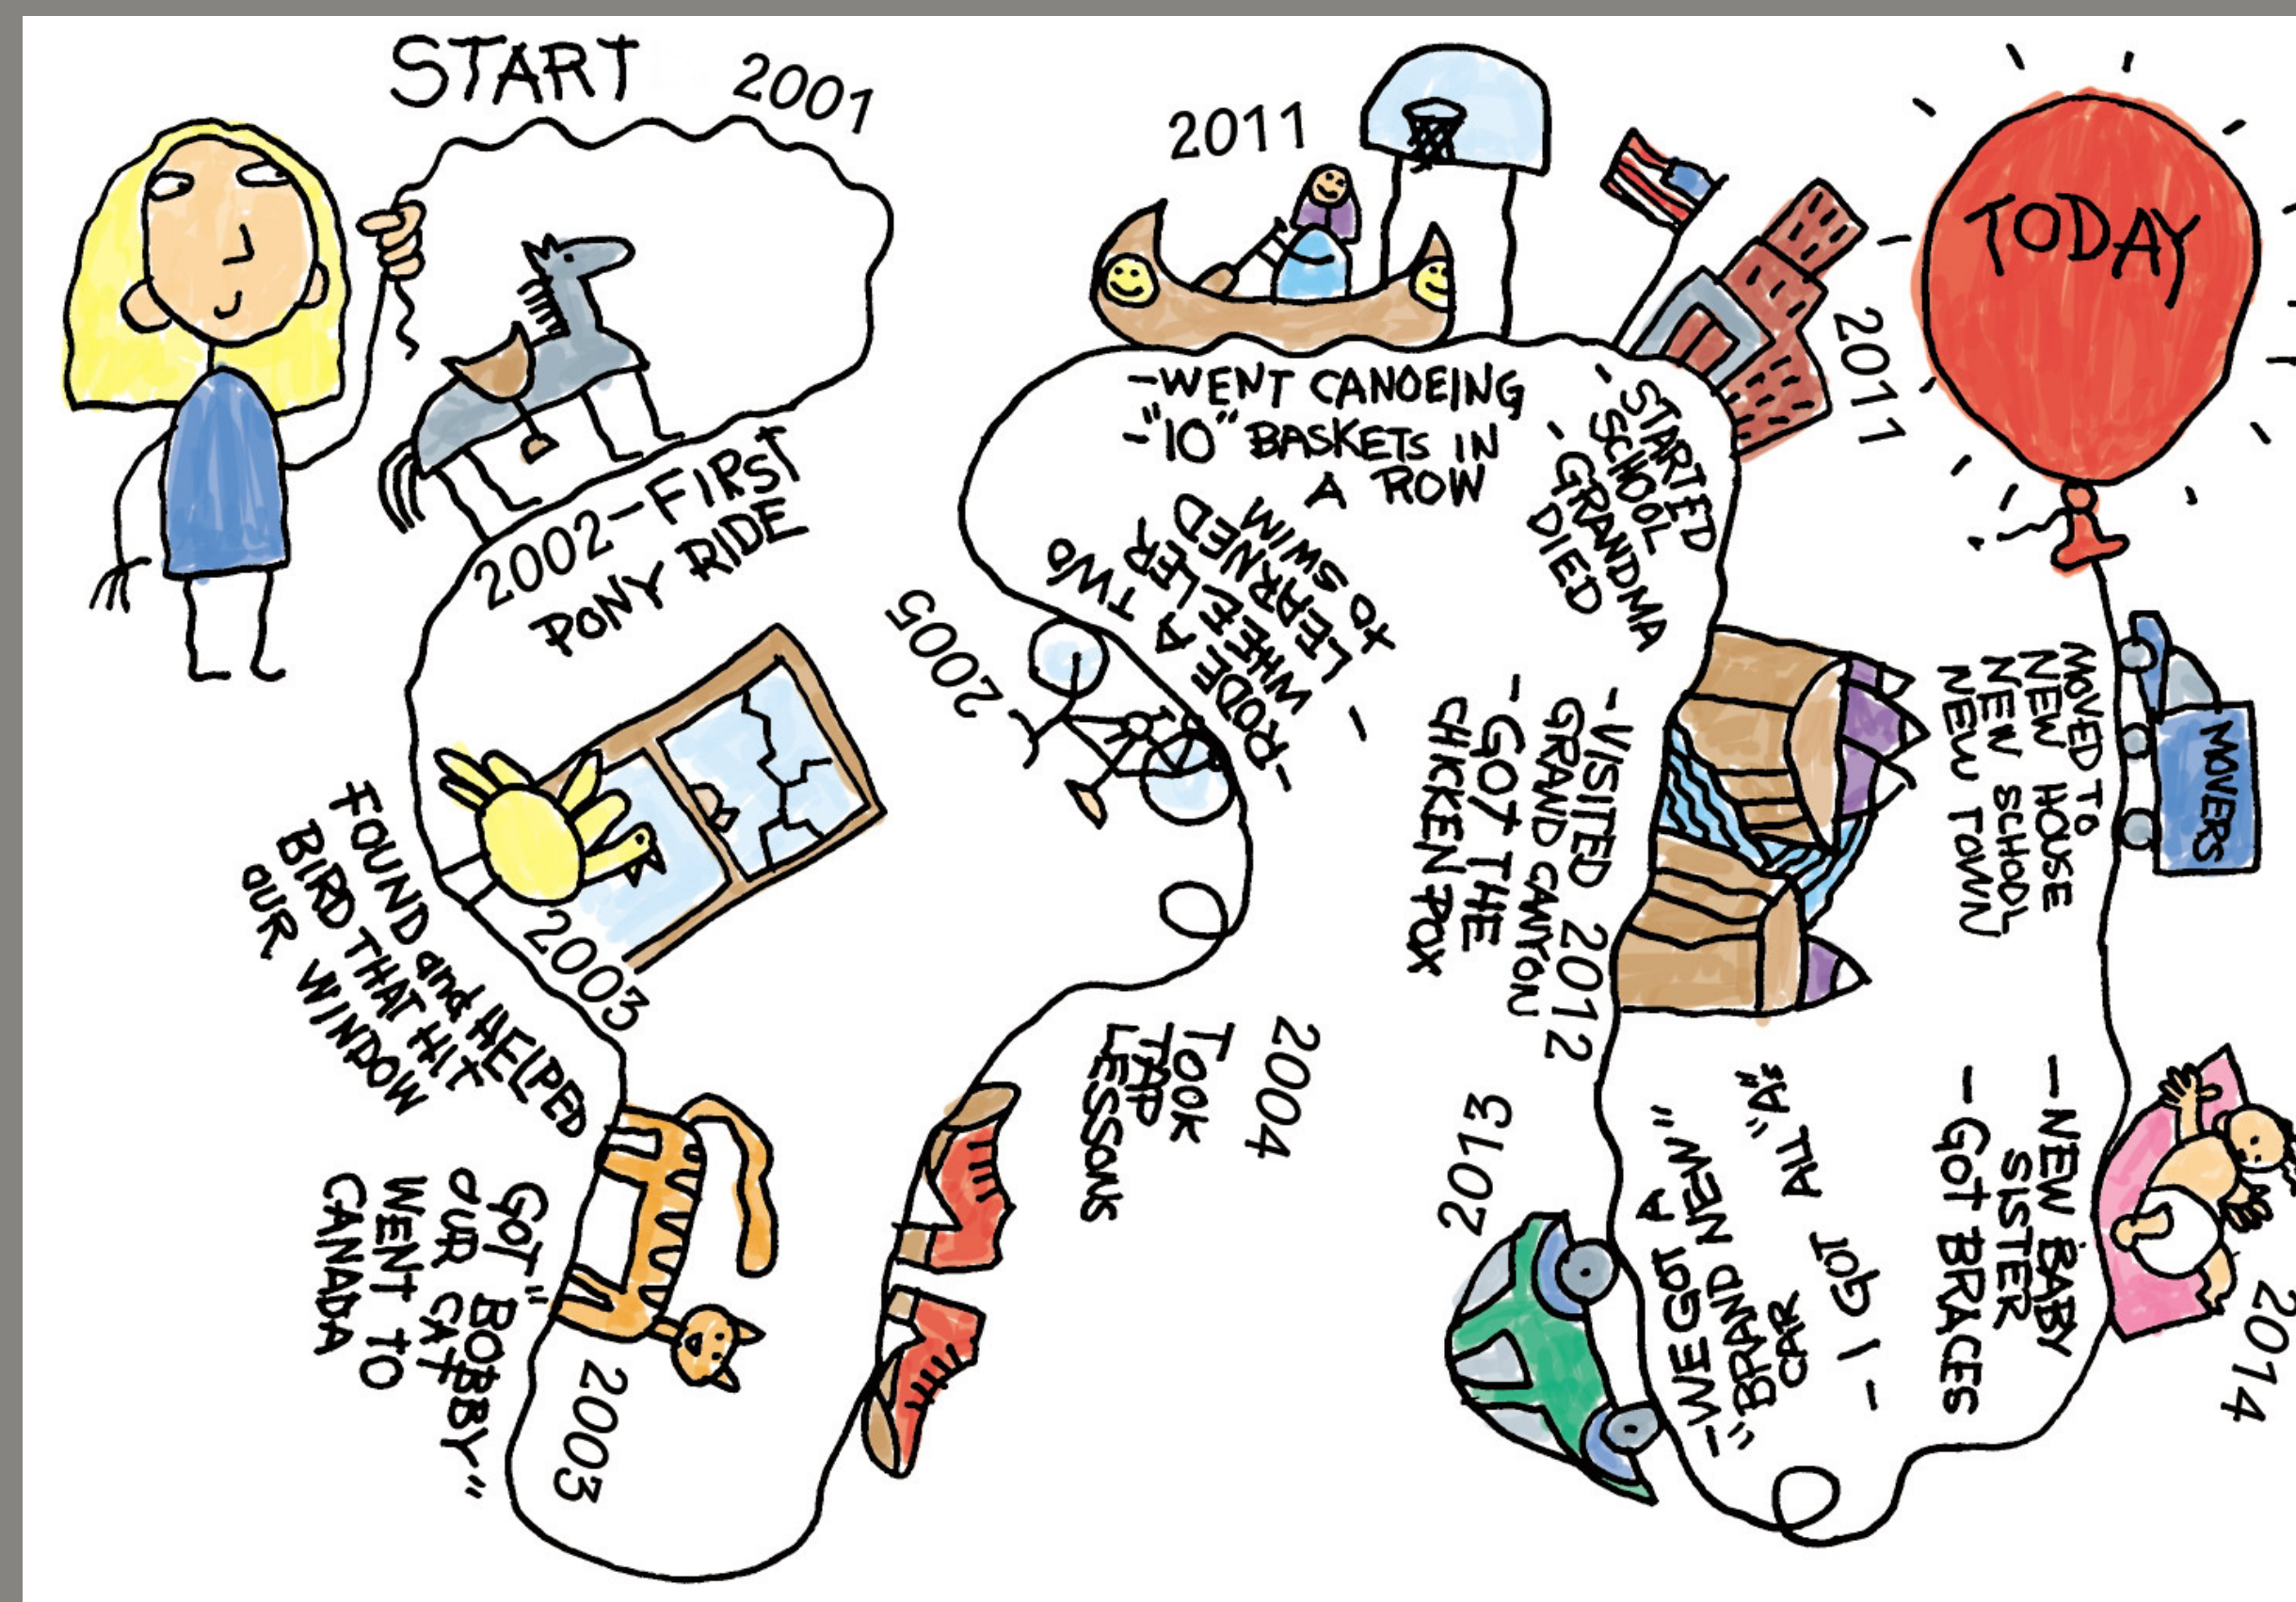 START
2001
2002-FIRST
PONY RIDE
2003
FOUND and HELPED
BIRD THAT HIT
OUR WINDOW
GOT "BOBBY"
OUR CAT
WENT TO
CANADA
2003
2004
TOOK
TAP
LESSONS
2005
-RODE A TWO
WHEELER
- LEARNED
TO SWIM
2011
-WENT CANOEING
-"10" BASKETS IN
A ROW
2011
- STARTED
SCHOOL
- GRANDMA
DIED
-VISITED 2012
GRAND CANYON
-GOT THE
CHICKEN POX
2013
-WE GOT A
"BRAND NEW"
CAR
- I GOT ALL "A"s
2014
-NEW BABY
SISTER
-GOT BRACES
MOVED TO
NEW HOUSE
NEW SCHOOL
NEW TOWN
MOVERS
TODAY